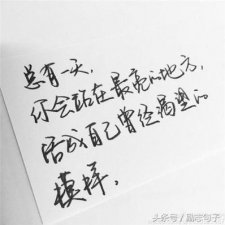 总有一天,
你会站在最亮的地方,
活成自己曾经渴望的
模样,
头条号 / 励志句子